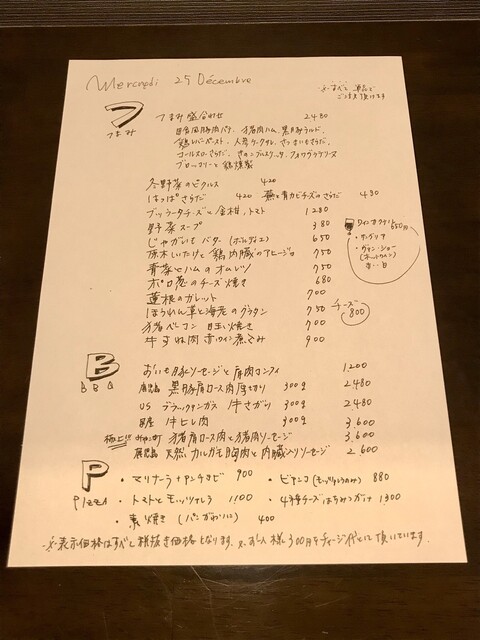 Mercredi 25 Décembre
※すべて単品で
ご注文頂けます
つ
つまみ
つまみ盛合わせ 2480
自家製豚肉パテ、猪肉ハム、黒豚リエット、
鶏レバーペースト、人参ラペサラダ、さつまいもサラダ、
コールスローサラダ、きのこブルスケッタ、フォワグラムース
ブロッコリーと鶏燻製
冬野菜のピクルス 420
はっぱさらだ 420
蕪と青カビチーズのさらだ 480
ブッラータチーズと金柑、トマト 1280
野菜スープ 380
じゃがいもバター (ポムピュレ) 650
原木しいたけと鶏内臓のアヒージョ 750
青菜とハムのオムレツ 750
ポロ葱のチーズ焼き 680
蓮根のガレット 700
ほうれん草と海老のグラタン 750
猪ベーコン 目玉焼き 700
牛すね肉 赤ワイン煮こみ 900
ワインカクテル 650円
・サングリア
・ヴァンショー
(ホットワイン)
赤・白
チーズ
800
B
BBQ
おいも豚ソーセージと肩肉コンフィ 1,200
鹿児島 黒豚肩ロース肉厚切り 300g 2480
US ブラックアンガス 牛さがり 300g 2480
国産 牛ヒレ肉 300g 3,600
極上!! 猪肩ロース肉と猪肉ソーセージ 3,600
天然カルガモ胸肉と内臓入りソーセージ 2,600
P
PizzA
・マリナーラ+アンチョビ 900
・ビアンコ (モッツァレラのみ) 880
・トマトとモッツァレラ 1100
・4種チーズ はちみつがけ 1300
・素焼き (パンがわりに) 400
※表示価格はすべて税抜き価格となります。※お1人様 300円をチャージ代として頂いています。